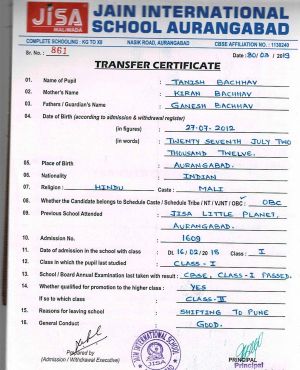 JISA
MALIWADA
JAIN INTERNATIONAL
SCHOOL AURANGABAD
COMPLETE SCHOOLING : KG TO XII NASIK ROAD, AURANGABAD CBSE AFFILIATION NO. : 1130240
Sr. No. : 861 Date : 30/03/2019
TRANSFER CERTIFICATE
01. Name of Pupil : TANISH BACHHAV
02. Mother's Name : KIRAN BACHHAV
03. Fathers / Guardian's Name : GANESH BACHHAV
04. Date of Birth (according to admission & withdrawal register)
(in figures) : 27-07-2012
(in words) : TWENTY SEVENTH JULY TWO
THOUSAND TWELVE.
05. Place of Birth : AURANGABAD.
06. Nationality : INDIAN
07. Religion : HINDU Caste : MALI
08. Whether the Candidate belongs to Schedule Caste / Schedule Tribe / NT / VJNT / OBC : OBC
09. Previous School Attended : JISA LITTLE PLANET,
AURANGABAD.
10. Admission No. : 1609
11. Date of admission in the school with class : Dt. 16/02/2018 Class : I
12. Class in which the pupil last studied : CLASS-I
13. School / Board Annual Examination last taken with result : CBSE, CLASS-I PASSED.
14. Whether qualified for promotion to the higher class : YES
If so to which class : CLASS-II
15. Reasons for leaving school : SHIFTING TO PUNE
16. General Conduct : GOOD.
Prepared by
(Admission / Withdrawal Executive)
JAIN INTERNATIONAL SCHOOL
JISA
PRINCIPAL
Principal